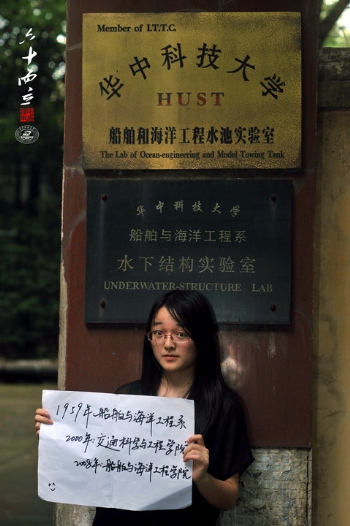 六十四立
Member of I.T.T.C.
华中科技大学
HUST
船舶和海洋工程水池实验室
The Lab of Ocean-engineering and Model Towing Tank
华中科技大学
船舶与海洋工程系
水下结构实验室
UNDERWATER-STRUCTURE LAB
1959年-船舶与海洋工程系
2000年:交通科学与工程学院
2008年-船舶与海洋工程学院